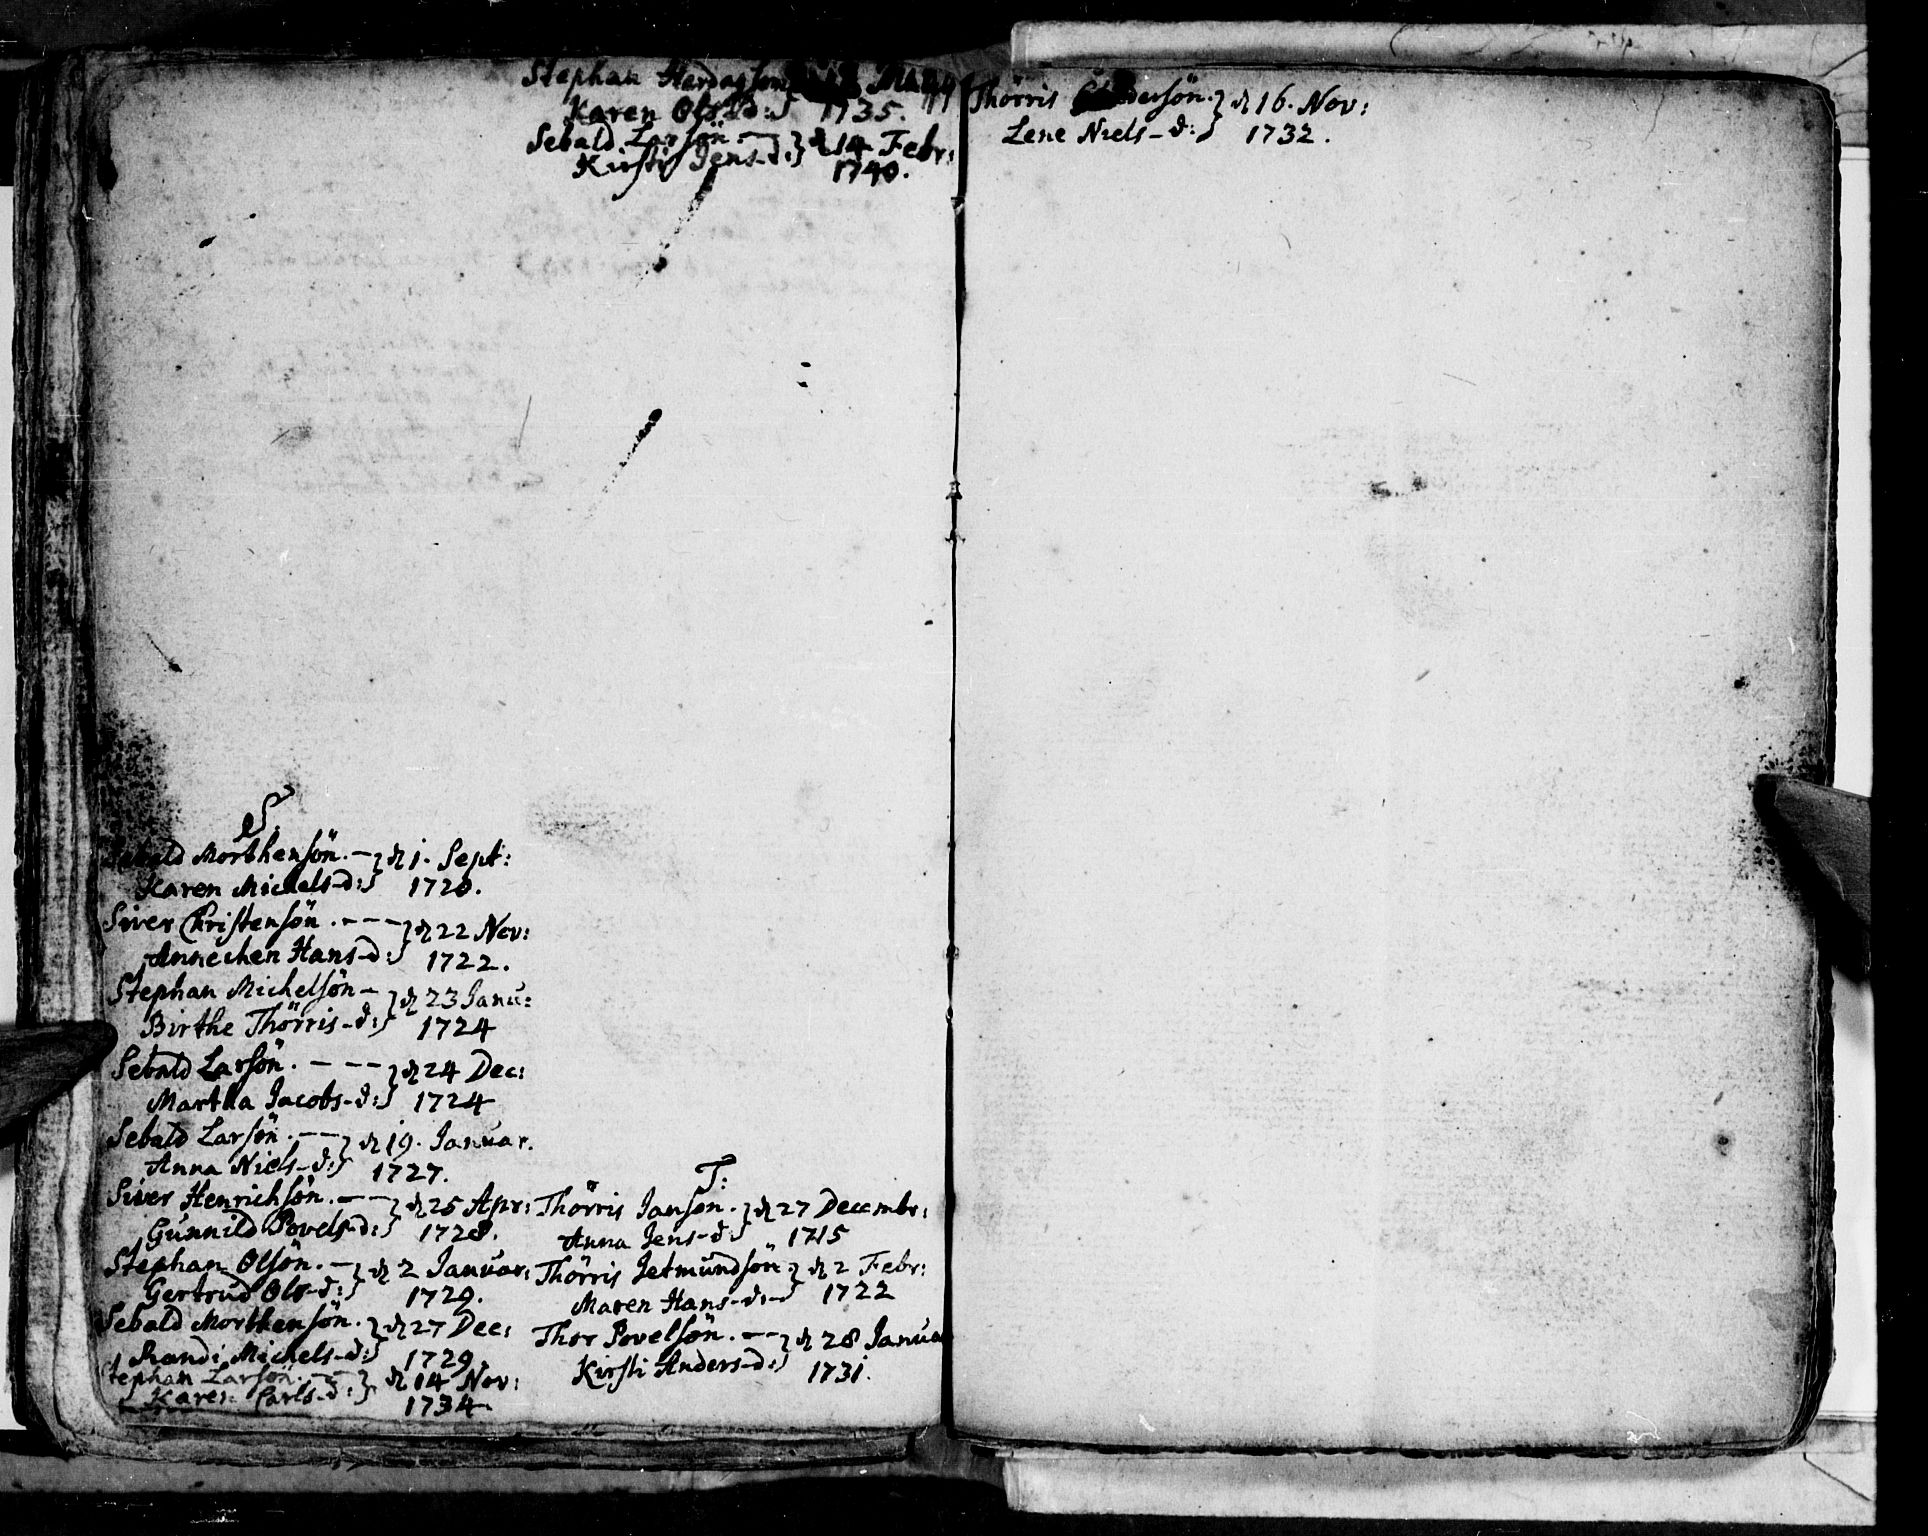 S.
Sebald Morthensön. – } d 1. Sept:
Karen Michels-d:} 1720.
Siver Christensön. - - - } d 22 Nov:
Annechen Hans-d:} 1722.
Stephan Michelsön – } d 23 Janu:
Birthe Thörris-d:} 1724
Sebald Larsön. - - - } d 24 Dec:
Martha Jacobs-d:} 1724
Sebald Larsön. - - } d 19. Januar.
Anna Niels-d:} 1727.
Siver Henrichsön. - - } d 25 Apr:
Gunnild Povels-d:} 1728.
Stephan Olsön. – } d 2 Januar:
Gertrud Ols-d:} 1729.
Sebald Morthensön. } d 27 Dec:
Randi Michels-d:} 1729.
Stephan Larsön. - - } d 14 Nov:
Karen Carls-d:} 1734.
Stephan
Karen Ols-d:} 1735.
Sebald Larsön. – } d 14 Febr:
Kirsti Jens-d:} 1740.
T:
Thörris Jansön. } d 27 Decembr:
Anna Jens-d:} 1715
Thörris Jetmundsön } d 2 Febr:
Maren Hans-d:-} 1722
Thor Povelsön. - - } d 28 Janua
Kirsti Anders-d:} 1731.
Thörris } d 16. Nov:
Lene Niels-d:} 1732.